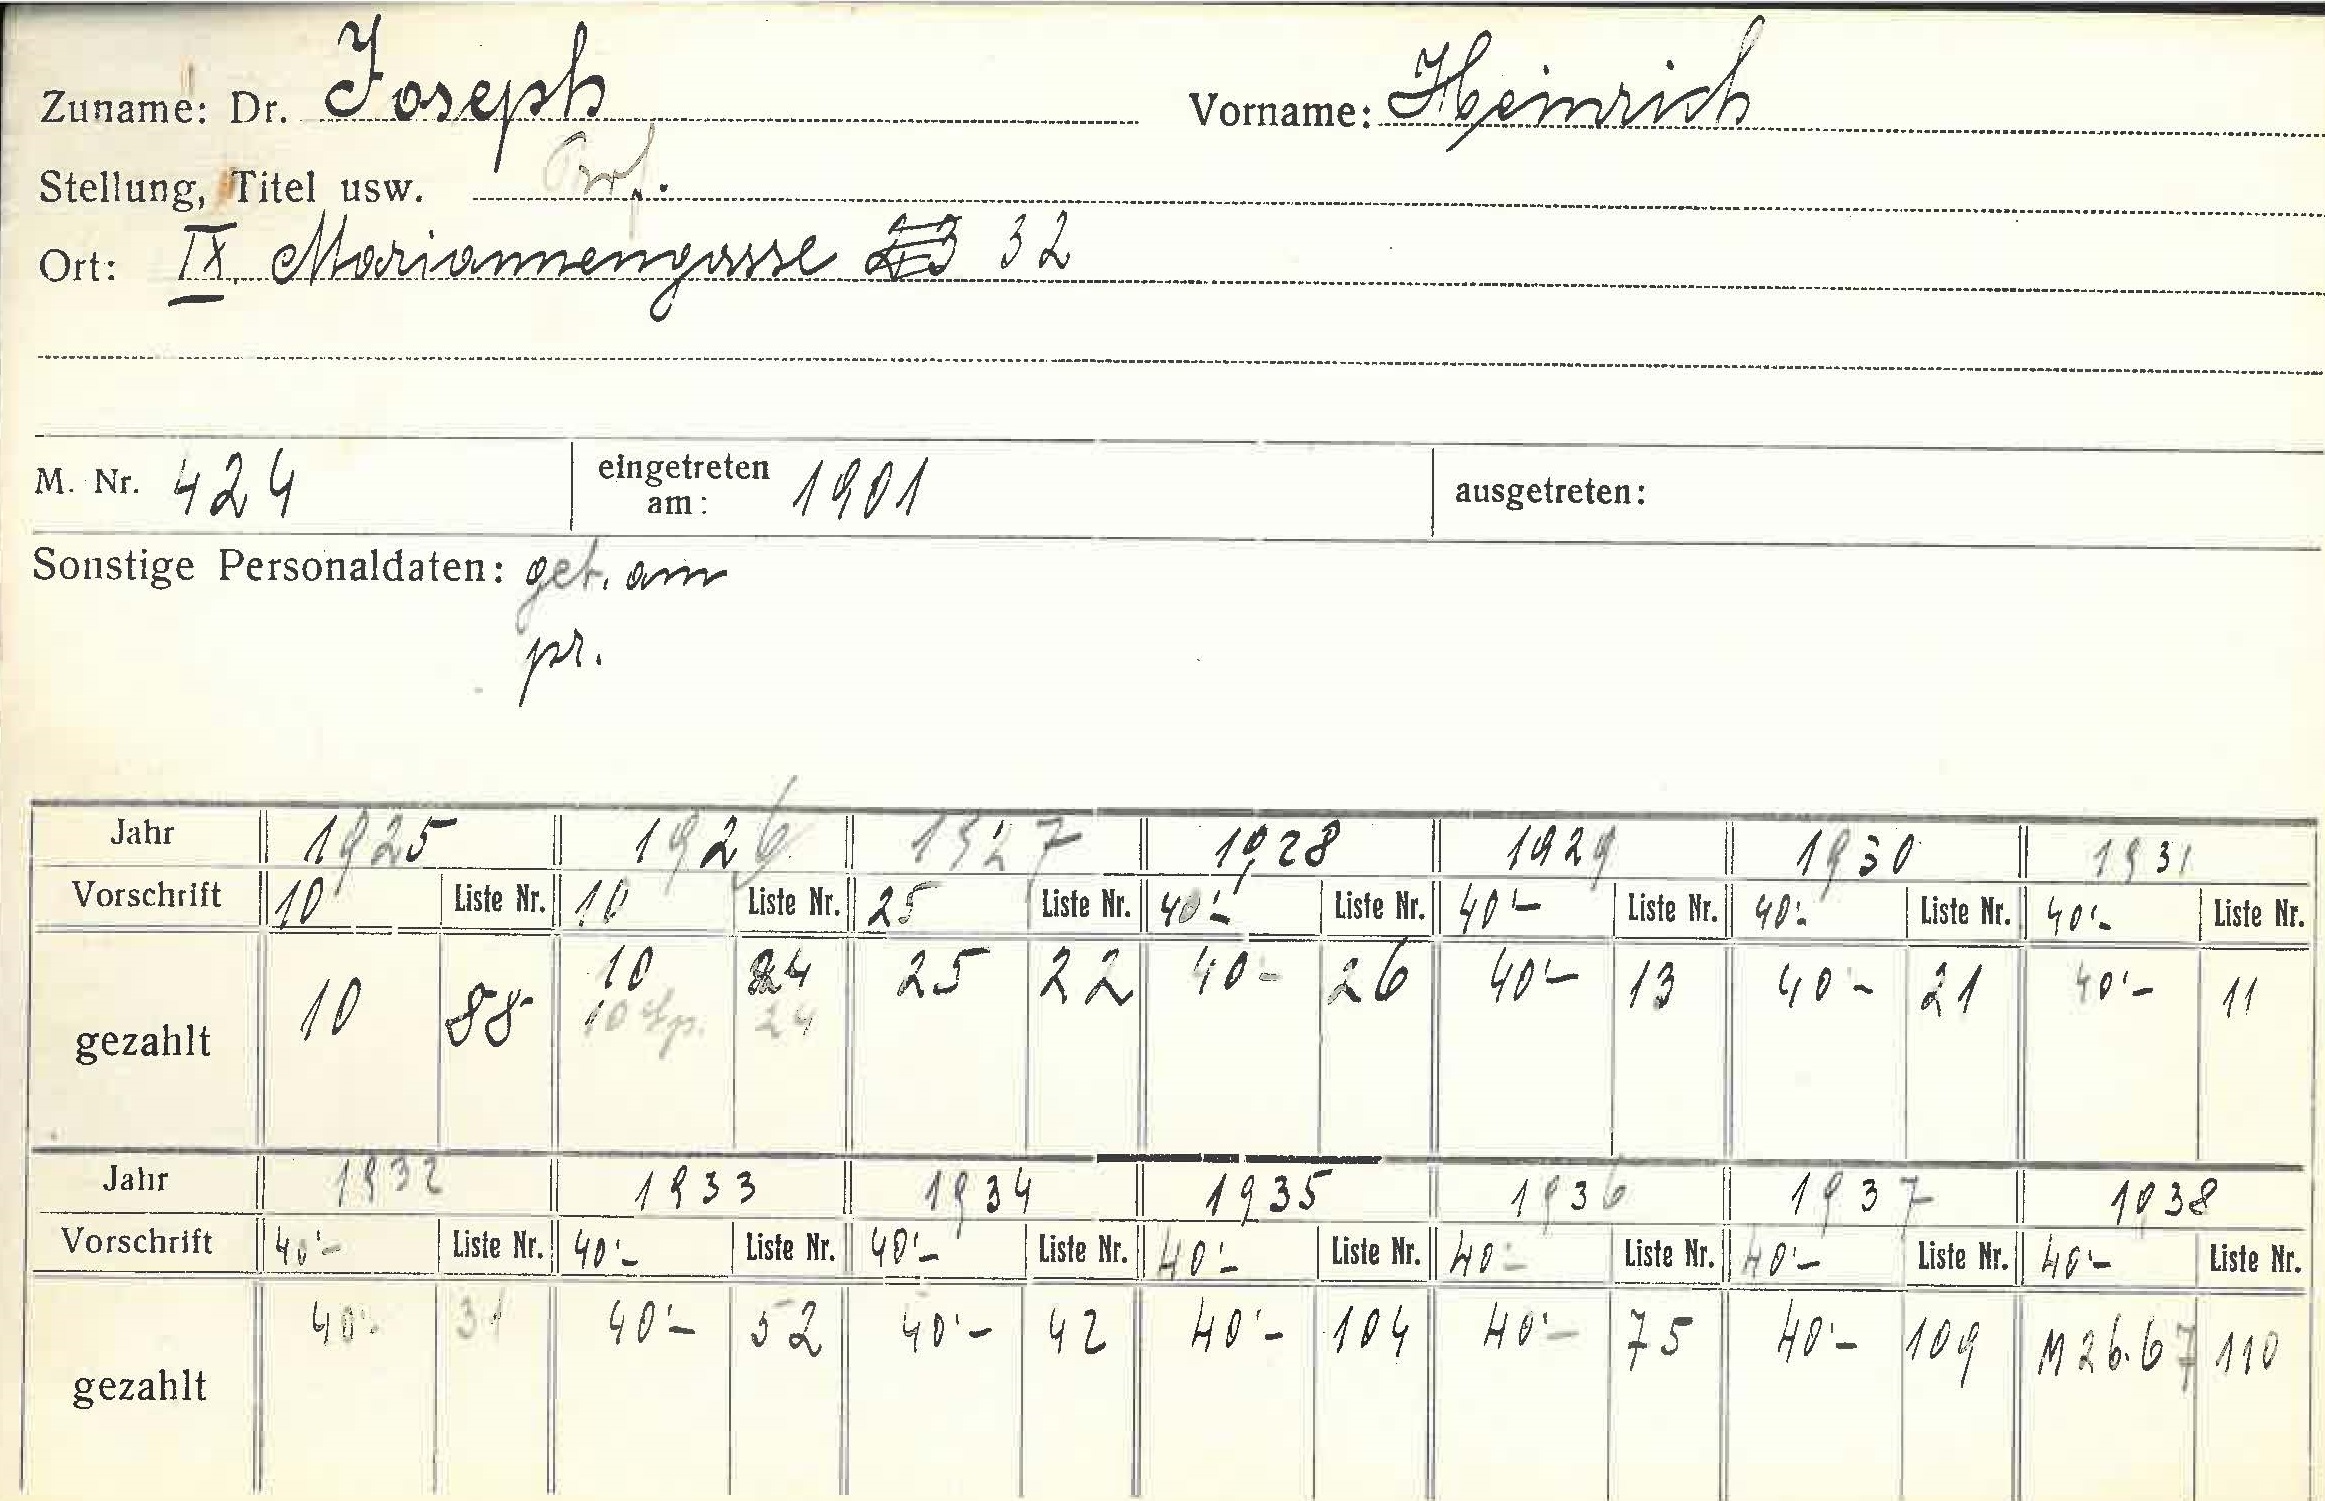 Zuname: Dr. Joseph Vorname: Heinrich
Stellung, Titel usw. Prof.
Ort: IX. Mariannengasse 32
M. Nr. 424 eingetreten am: 1901 ausgetreten:
Sonstige Personaldaten: geb. am
pr.
Jahr 1925 1926 1927 1928 1929 1930 1931
Vorschrift 10 Liste Nr. 10 Liste Nr. 25 Liste Nr. 40'- Liste Nr. 40'- Liste Nr. 40'- Liste Nr. 40'- Liste Nr.
gezahlt 10 88 10 24 25 22 40- 26 40'- 13 40'- 21 40'- 11
10 Sp. 24
Jahr 1932 1933 1934 1935 1936 1937 1938
Vorschrift 40'- Liste Nr. 40'- Liste Nr. 40'- Liste Nr. 40'- Liste Nr. 40'- Liste Nr. 40'- Liste Nr. 40'- Liste Nr.
gezahlt 40'- 31 40'- 52 40'- 42 40'- 104 40'- 75 40'- 109 M 26.67 110